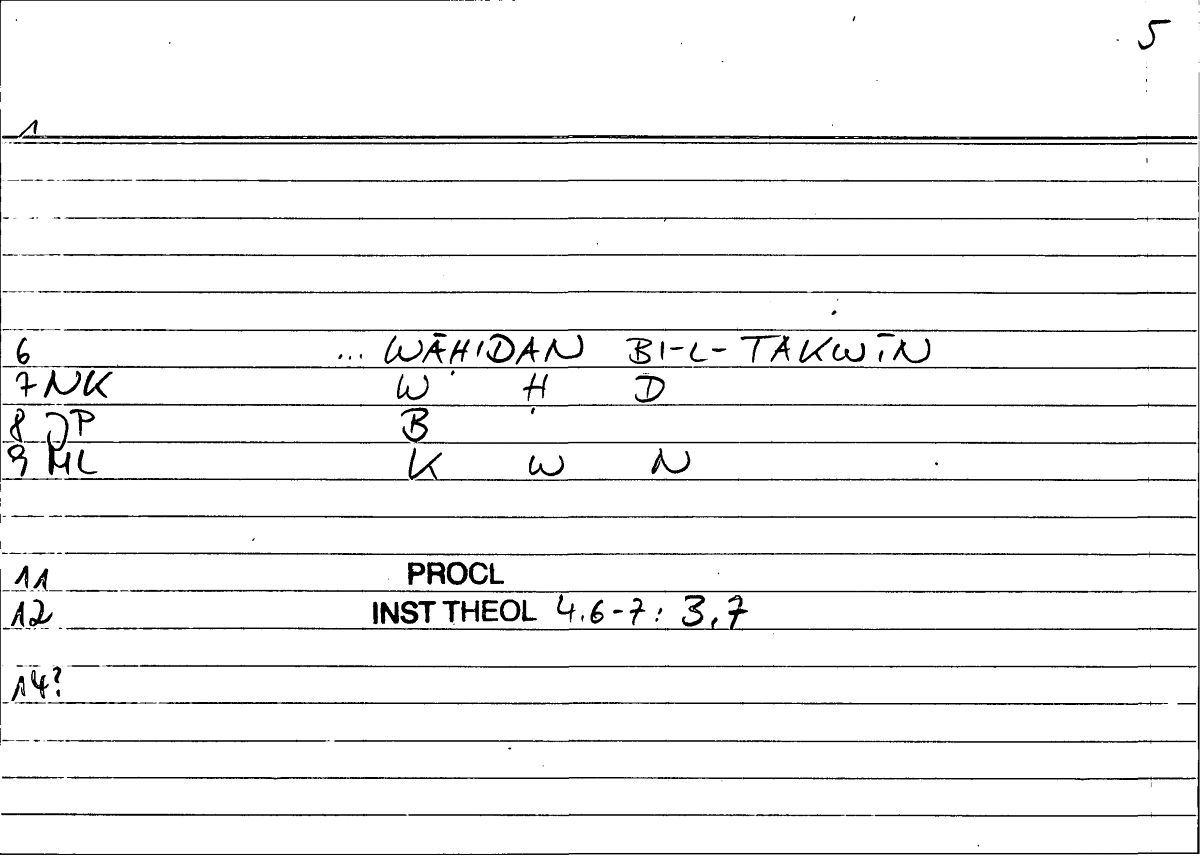 5
1
6 ... WĀḤIDAN BI-L-TAKWĪN
7 NK W Ḥ D
8 JP B
9 ML K W N
11 PROCL
12 INST THEOL 4.6-7: 3,7
14?